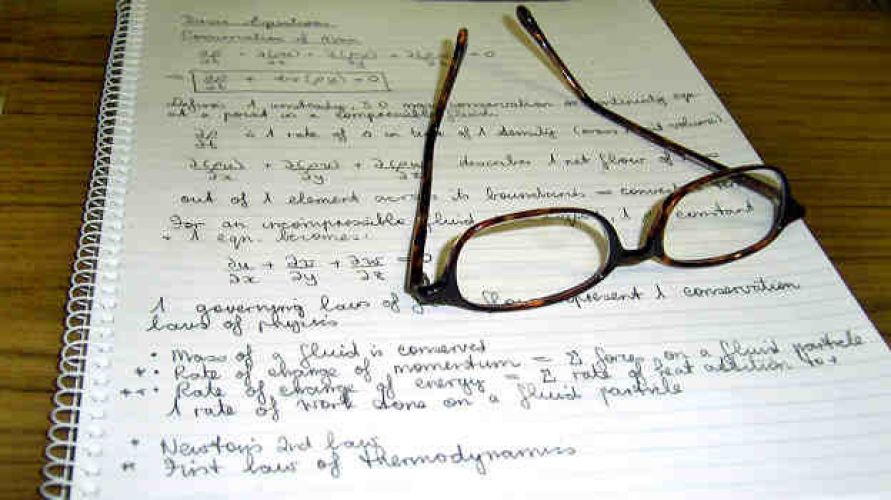 Basic Equations
Conservation of Mass
∂ρ/∂t + ∂(ρu)/∂x + ∂(ρv)/∂y + ∂(ρw)/∂z = 0
→ ∂ρ/∂t + div(ρu) = 0
Defines 1 unsteady, 3D mass conservation or continuity eqn
at a point in a compressible fluid.
∂ρ/∂t is 1 rate of Δ in time of 1 density (mass volume)
∂(ρu)/∂x + ∂(ρv)/∂y + ∂(ρw)/∂z describes 1 net flow of
out of 1 element across its boundaries =
For an incompressible fluid 1 constant
+ 1 eqn. becomes:
∂u/∂x + ∂v/∂y + ∂w/∂z = 0
1 governing laws of represent 1 conservation
laws of physics
• Mass of a fluid is conserved
*• Rate of change of momentum = Σ forces on a fluid particle
**• Rate of change of energy = Σ rate of heat addition to +
1 rate of work done on a fluid particle
* Newton's 2nd law
** First law of thermodynamics